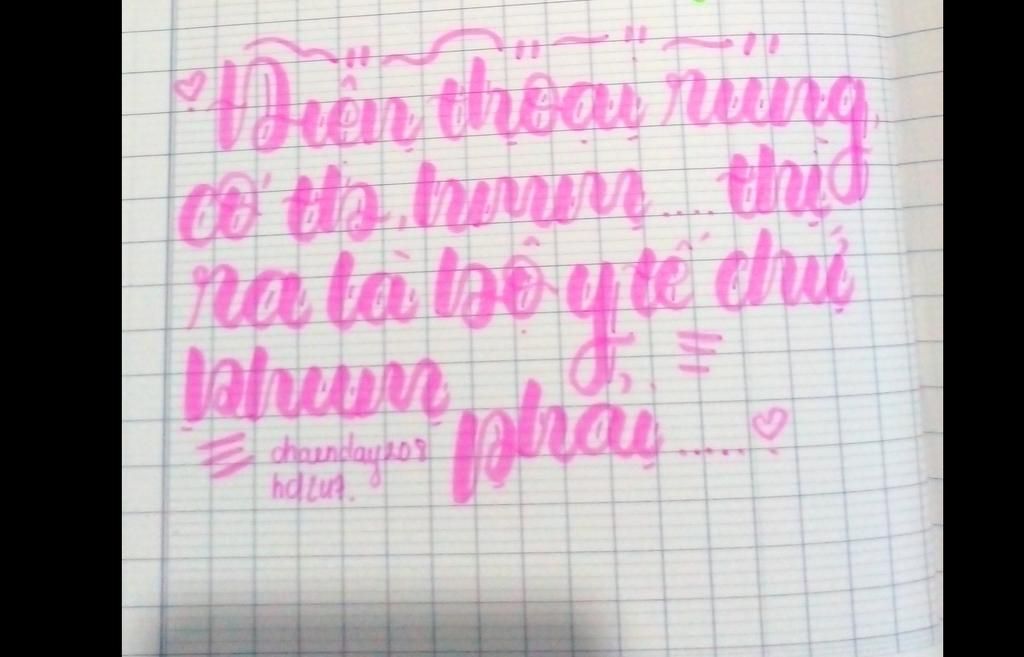 Điện thoại rung
cớ tb, hmmm.... thì
ra là bộ y tế chứ
khum phải.....
chaenday208